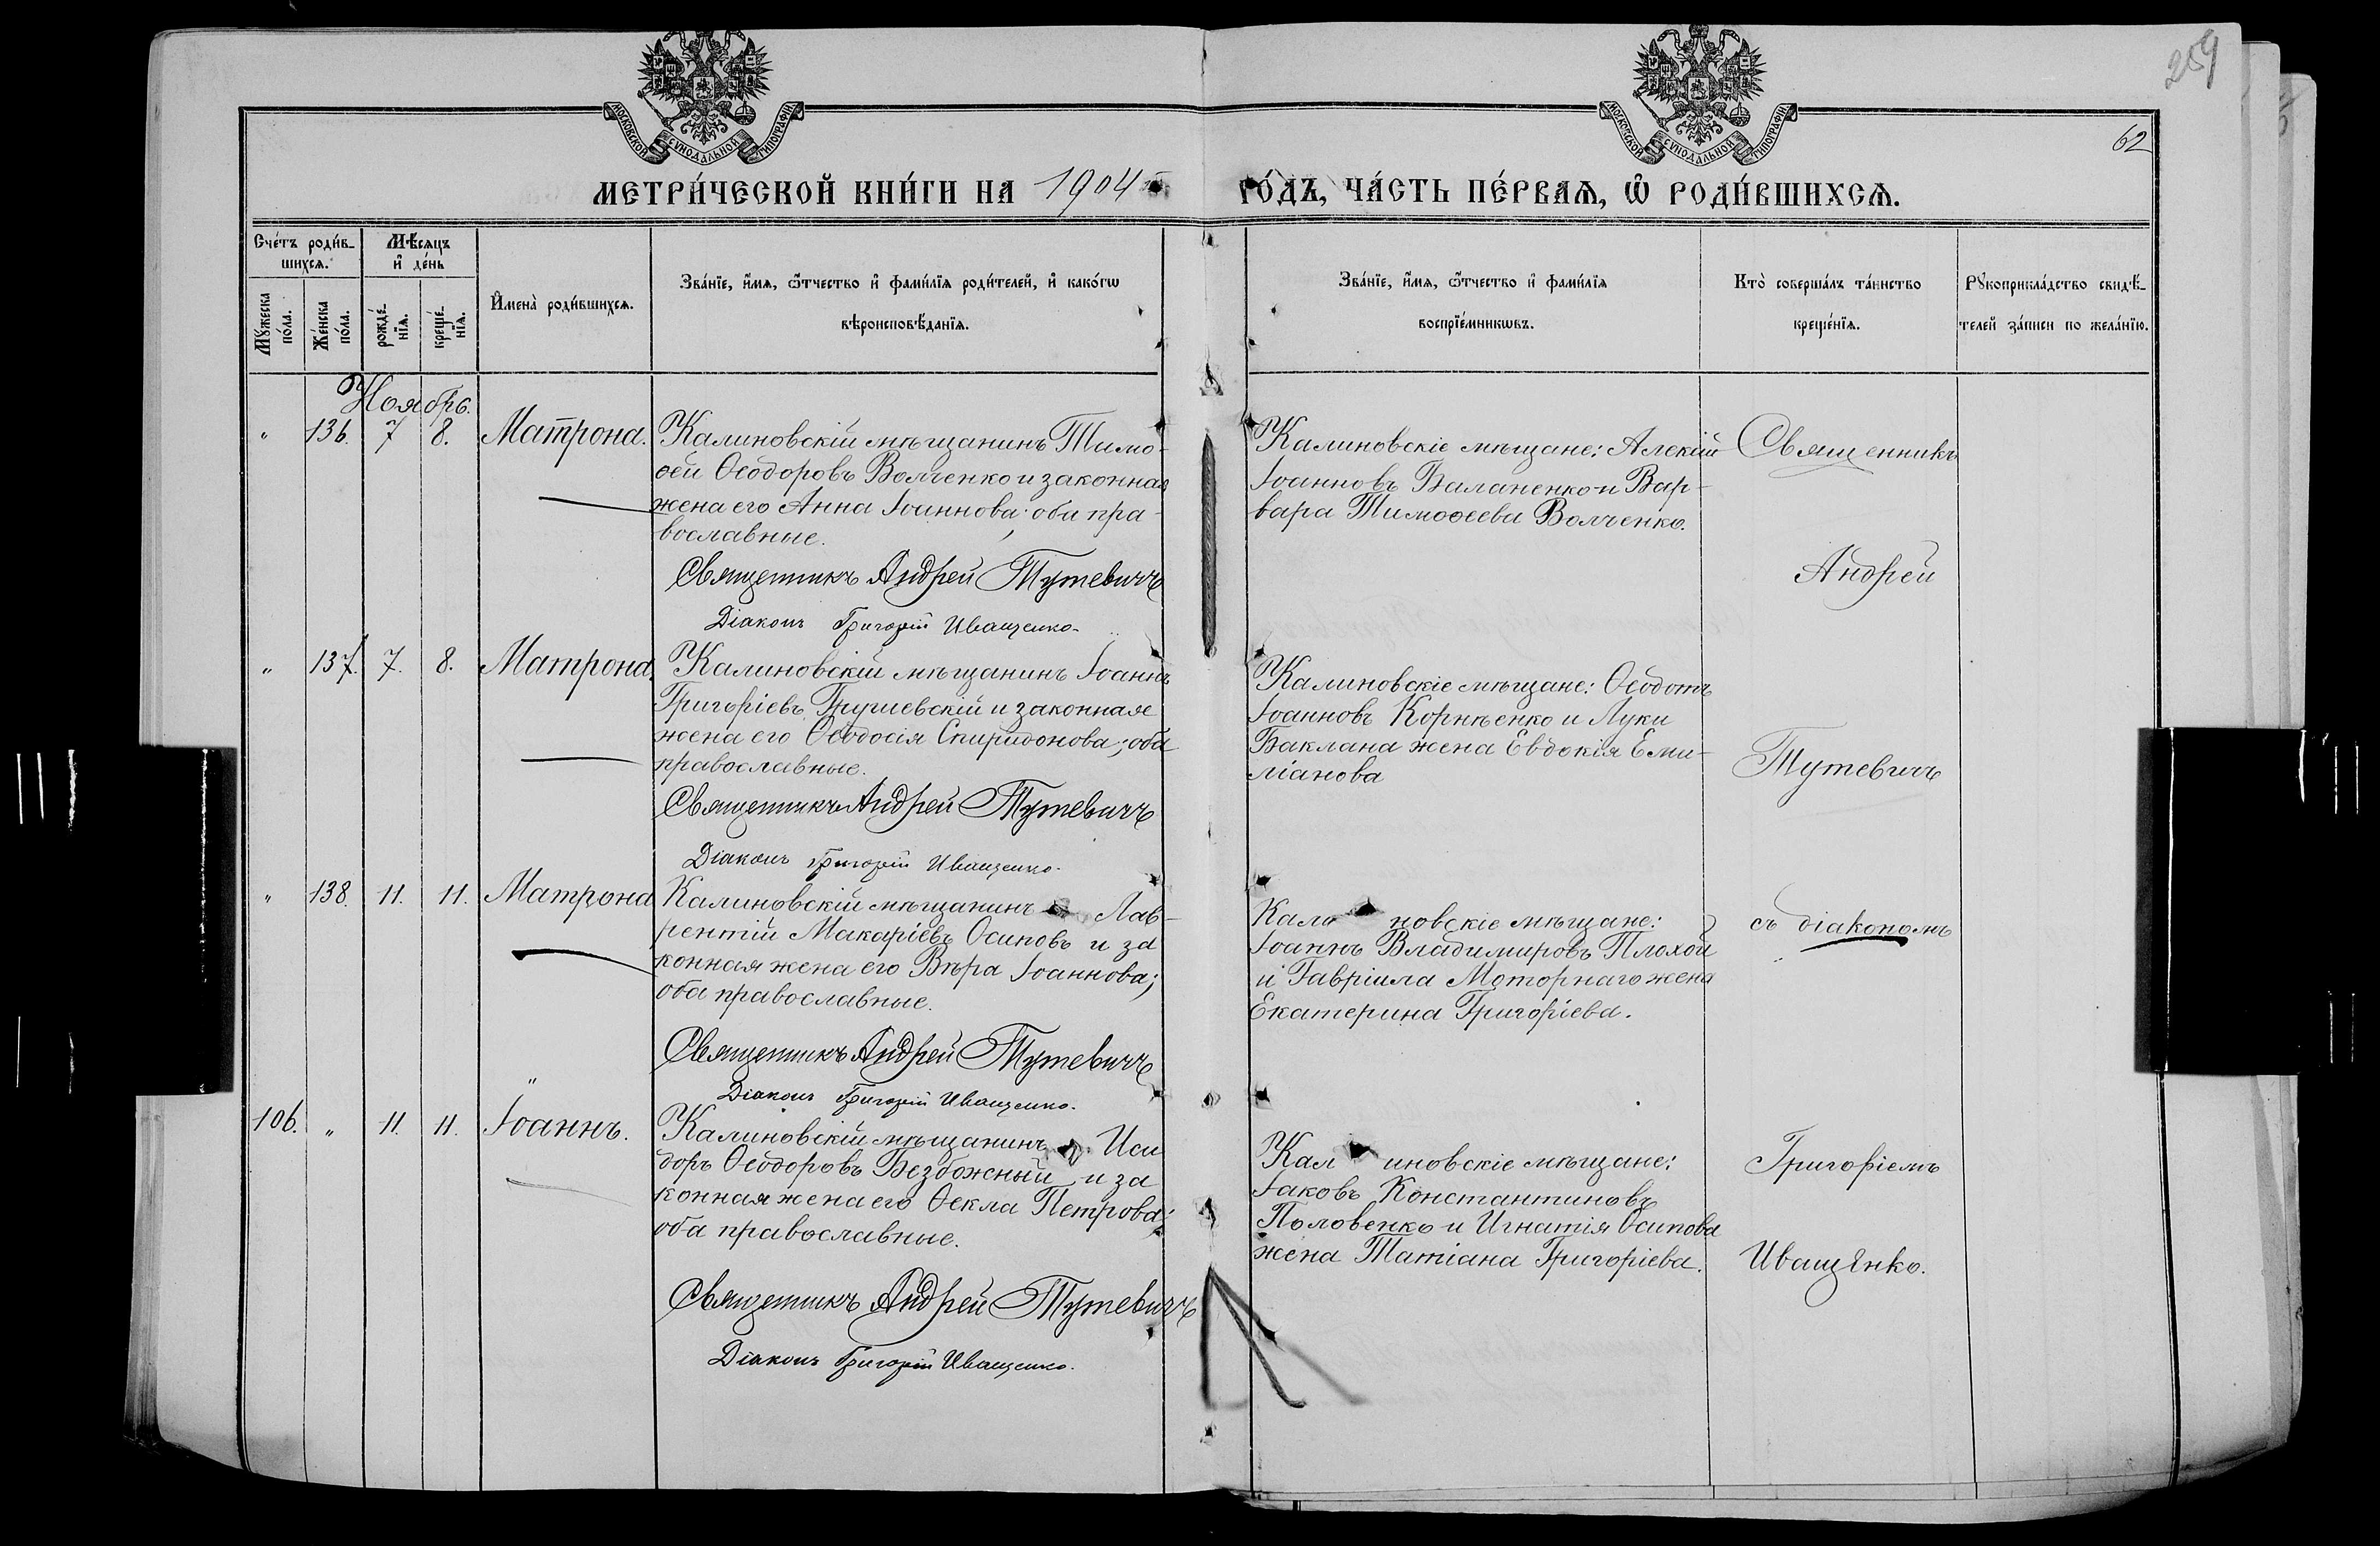 259
62
МОСКОВСКОЙ СѴНОДАЛЬНОЙ ТИПОГРАФІИ
МОСКОВСКОЙ СѴНОДАЛЬНОЙ ТИПОГРАФІИ
МЕТРИ́ЧЕСКОЙ КНИ́ГИ НА 1904 ГО́ДЪ, ЧА́СТЬ ПЕ́РВАѦ, Ѡ҆ РОДИ́ВШИХСѦ.
Сче́тъ роди́в-
шихсѧ.
Мꙋ́жеска по́ла.
Же́нска по́ла.
Мѣ́сѧцъ
и҆ де́нь
рожде́-
нїѧ.
креще́-
нїѧ.
И҆мена̀ роди́вшихсѧ.
Зва́нїе, и҆́мѧ, ѻ҆́тчество и҆ фами́лїѧ роди́телей, и҆ како́гѡ
вѣроисповѣ́данїѧ.
Зва́нїе, и҆́мѧ, ѻ҆́тчество и҆ фами́лїѧ
воспрїе́мникѡвъ.
Кто̀ соверша́лъ та́инство
креще́нїѧ.
Рꙋкоприкла́дство свидѣ́-
телей за́писи по жела́нїю.
Ноябрь.
" 136. 7 8. Матрона.
Калиновскій мѣщанинъ Тимо-
ѳей Ѳеодоровъ Волченко и законная
жена его Анна Іоаннова; оба пра-
вославные.
Священникъ Андрей Тутевичъ
Діаконъ Григорій Иващенко.
Калиновскіе мѣщане: Алексій
Іоанновъ Баланенко и Вар-
вара Тимоѳеева Волченко.
Священникъ
Андрей
" 137. 7. 8. Матрона.
Калиновскій мѣщанинъ Іоаннъ
Григоріевъ Грушевскій и законная
жена его Ѳеодосія Спиридонова; оба
православные.
Священникъ Андрей Тутевичъ
Діаконъ Григорій Иващенко.
Калиновскіе мѣщане: Ѳеодотъ
Іоанновъ Корнѣенко и Луки
Баклана жена Евдокія Еми-
ліанова
Тутевичъ
" 138. 11. 11. Матрона
Калиновскій мѣщанинъ Лав-
рентій Макаріевъ Осиповъ и за
конная жена его Вѣра Іоаннова;
оба православные.
Священникъ Андрей Тутевичъ
Діаконъ Григорій Иващенко.
Кали новскіе мѣщане:
Іоаннъ Владимировъ Плохой
и Гавріила Моторнаго жена
Екатерина Григоріева.
съ діакономъ
106. " 11. 11. Іоаннъ.
Калиновскій мѣщанинъ Иси
доръ Ѳеодоровъ Безбожный и за
конная жена его Ѳекла Петрова;
оба православные.
Священникъ Андрей Тутевичъ
Діаконъ Григорій Иващенко.
Кал иновскіе мѣщане:
Іаковъ Константиновъ
Половенко и Игнатія Осипова
жена Татіана Григоріева.
Григоріемъ
Иващенко.